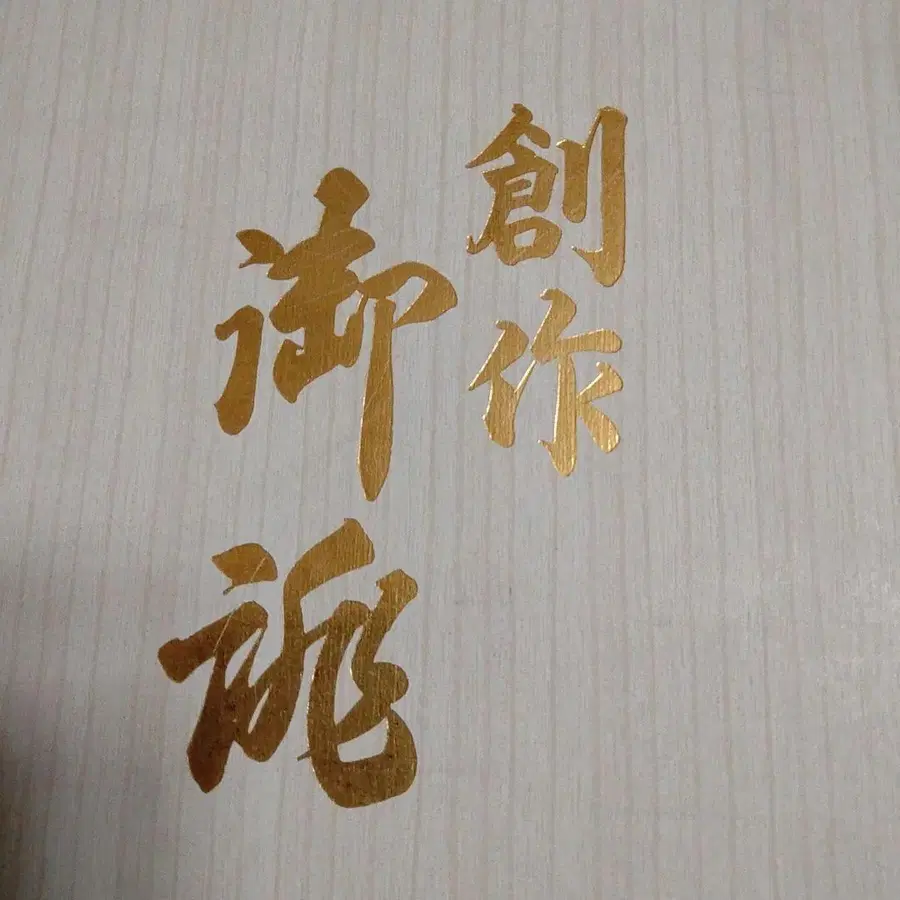 創作
御誂